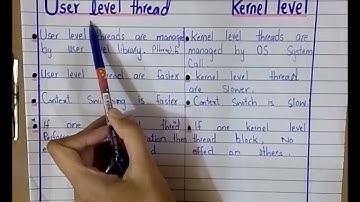 User level thread
Kernel level
User level threads are manage
by user level library.
kernel level threads are
managed by OS System
Call.
User level thread are faster
kernel level thread
are slower.
Context Switching is faster
Context Swatch is slow.
If one level
If one kernel level
thread block, No
effect on others.